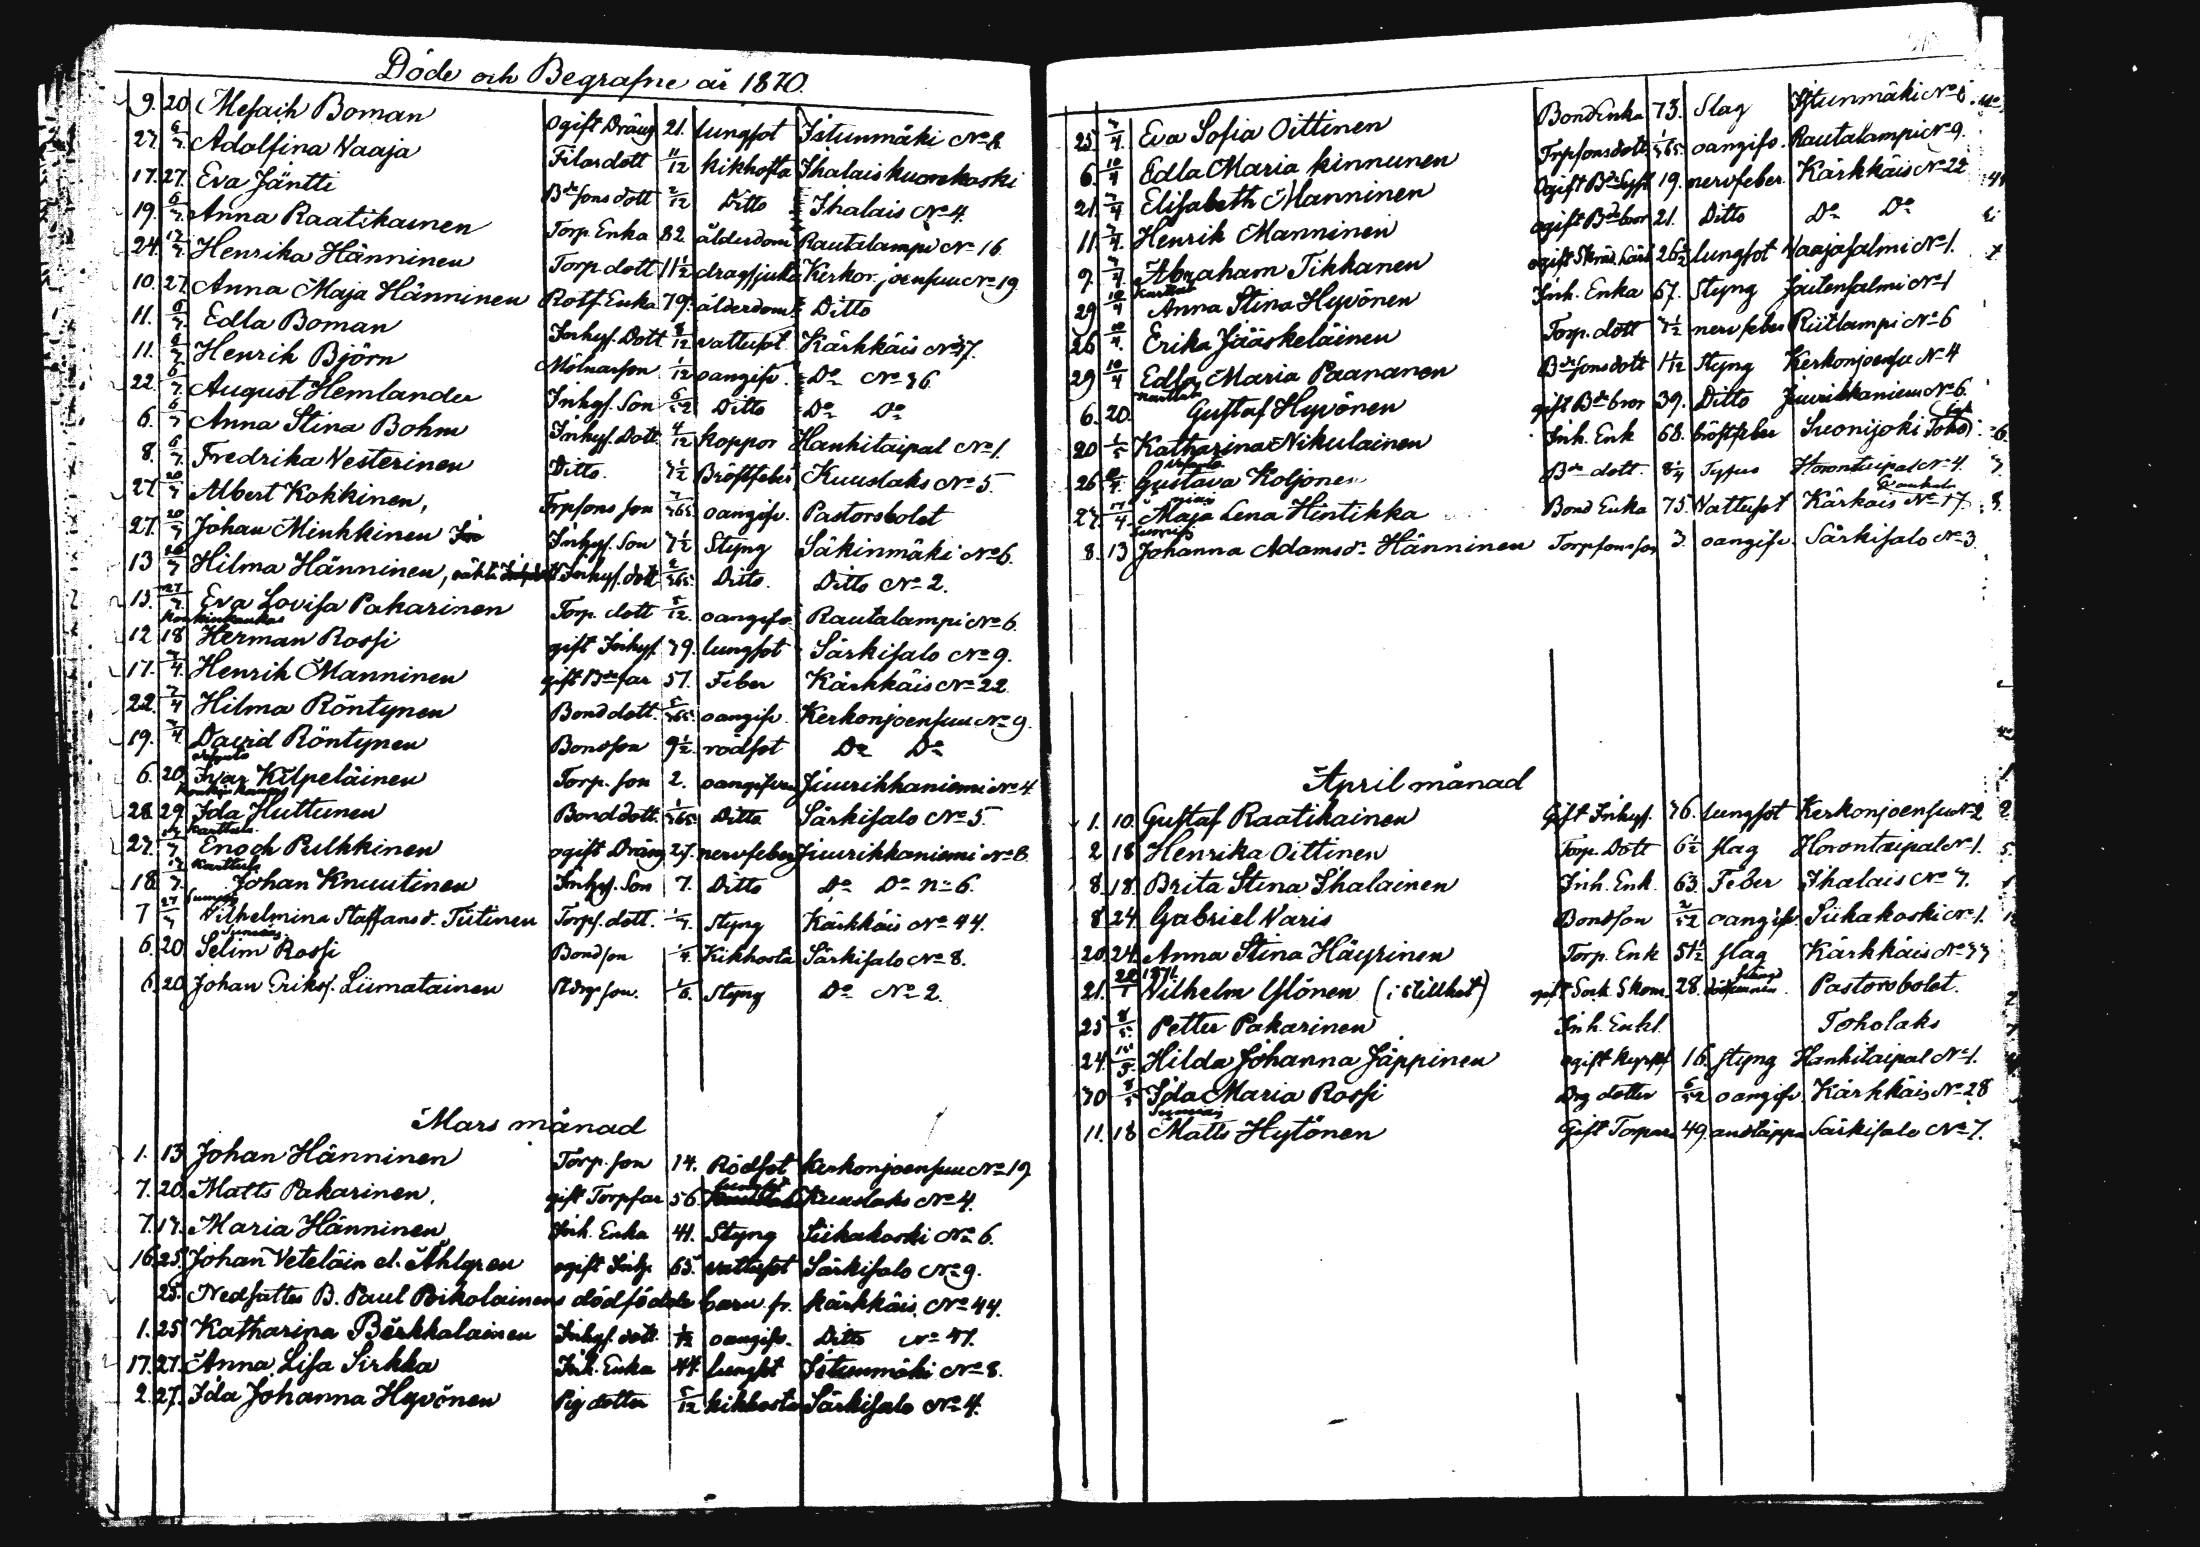 Döde och Begrafne år 1870.
9. 20 Mesach Boman Ogift Dräng 21. lungsot Istunmäki No 8.
27. 6/3 Adolfina Vaaja Filas dott 11/12 kikhosta Ihalais kuorekoski
17. 27. Eva Jäntti Bdesons dott 2/12 Ditto Ihalais No 4.
19. 6/3 Anna Raatikainen Torp. Enka 82 ålderdom Rautalampi No 16
24. 17/3 Henrika Hänninen Torp. dott 11 1/2 dragsjuka Kerkonjoensuu No 19
10. 27 Anna Maja Hänninen Rotf. Enka 79. ålderdom Ditto
11. 6/3 Edla Boman Inhys. Dott 8/12 vattusot Kärkkäis No 37.
11. 6/3 Henrik Björn Mölnarson 1/12 oangifv. Do No 36
22. 6/3 August Hemlander Inhys. Son 6/52 Ditto Do Do
6. 6/3 Anna Stina Bohm Inhys. Dott. 4/12 koppor Hankitaipal No 1.
8. 6/3 Fredrika Vesterinen Ditto. 3 1/2 Bröstfeber Kuuslaks No 5.
27. 20/3 Albert Kokkinen, Trpsons son 3/365 oangifv. Pastorsbolet
27. 20/3 Johan Minkkinen Inhys. Son 3 1/2 Styng Säkinmäki No 6.
13 26/3 Hilma Hänninen, oäkta Inhys. dott 2/365 Ditto. Ditto No 2.
13. 27/3 Eva Lovisa Pakarinen Torp. dott 5/12. oangifv. Rautalampi No 6.
Konkinkankas
12 18 Herman Rossi gift Inhys. 39. lungsot Särkisalo No 9.
17. 3/4 Henrik Manninen gift Bdefar 57. Feber Kärkkäis No 22.
22. 3/4 Hilma Röntynen Bond dott. 5/365 oangifv. Kerkonjoensuu No 9.
19. 3/4 David Röntynen Bondson 9 1/2 rödsot Do Do
6. 20. Ivar Kilpeläinen Torp. son 2. oangifven Juurikkaniemi No 4
28. 29 Ida Huttunen Bond dott. 1/365 Ditto Särkisalo No 5.
Karttula
27. Enoch Pulkkinen ogift Dräng 27. nervfeber Juurikkaniemi No 8.
Karttula
18. 17/3 Johan Knuutinen Inhys. Son 7. Ditto Do Do No 6.
7 27/3 Vilhelmina Staffans d. Tiitinen Torps. dott. Styng Kärkkäis No 44.
6. 20 Selim Rossi Bondson 1/4. Kikhosta Särkisalo No 8.
6. 20 Johan Eriks. Liimatainen son. 1/6. Styng Do No 2.
Mars månad
1. 13 Johan Hänninen Torp. son 14. Rödsot Kerkonjoensuu No 19
7. 20. Matts Pakarinen. gift Torpfar 56. lungsot Kuuslaks No 4.
7. 17. Maria Hänninen Inh. Enka 41. Styng Siikakoski No 6.
16. 25. Johan Veteläin el. Åhlgren ogift Inhy. 65. vattusot Särkisalo No 9.
25. Nedsattes B. Paul Poikolainens dödfödda barn fr. Kärkkäis No 44.
1. 25 Katharina Berkkalainen Inhys. dott. 1/12 oangifv. Ditto No 47.
17. 27. Anna Lisa Sirkka Inh. Enka 44. lungsot Istunmäki No 8.
2. 27. Ida Johanna Hyvönen Pig dotter 5/12 kikhosta Särkisalo No 4.
25. 3/4. Eva Sofia Oittinen Bond Enka 73. Slag Istunmäki No
6. 10/4 Edla Maria Kinnunen Trpsons dott. 1/365. oangifv. Rautalampi No 9.
21. 3/4 Elisabeth Manninen Ogift Bde Syst 19. nervfeber. Kärkkäis No 22
11. 3/4. Henrik Manninen ogift Bdebror 21. Ditto Do Do
9. 3/4. Abraham Tikkanen ogift Skräd. Lärl 26 1/2 lungsot Vaajasalmi No 1.
Karttula
29 10/4 Anna Stina Hyvönen Inh. Enka 67. Styng Joutensalmi No 1
26 10/4. Erika Jääskeläinen Torp. dott 3 1/2 nervfeber Riitlampi No 6
29 10/4 Edla Maria Paananen Bdesons dott Styng Kerkonjoensu No 4
Karttula
6. 20. Gustaf Hyvönen gift Bdebror 39. Ditto Juurikkaniemi No 6.
20 1/5 Katharina Nikulainen Inh. Enk 68. bröstfeber Suonijoki
26 Gustava Koljonen Bde dott. 8 1/4 Typus Horontaipal No 4.
27. 17/4 Maja Lena Hintikka Bond Enka 75. Vattusot Kärkäis No 17.
Sumiais
8. 13 Johanna Adams dr. Hänninen Torpsonson 3. oangifv. Särkisalo No 3.
April månad
1. 10. Gustaf Raatikainen Gift Inhys. 76. lungsot Kerkonjoensu No 2
2 18 Henrika Oittinen Torp. Dott 6 1/2 slag Horontaipal No 1.
8. 18. Brita Stina Ihalainen Inh. Enk. 63. Feber Ihalais No 7.
8 24. Gabriel Varis Bondson 2/52 oangifv. Siikakoski No 1.
20. 24. Anna Stina Häyrinen Torp. Enk 51 1/2 slag Kärkkäis No 33
1871
21. Vilhelm Ylönen (i stillhet) gift Sock. Skom. 28. Pastorsbolet.
25 8/5 Petter Pakarinen Inh. Enkl. Toholaks
24. 15/5. Hilda Johanna Jäppinen ogift 16. styng Hankitaipal No 1.
30 8/5 Ida Maria Rossi Drg dotter 6/52 oangifv. Kärkkäis No 28
Sumiais
11. 18 Matts Hytönen Gift Torpare 49. andtäppa Särkisalo No 7.